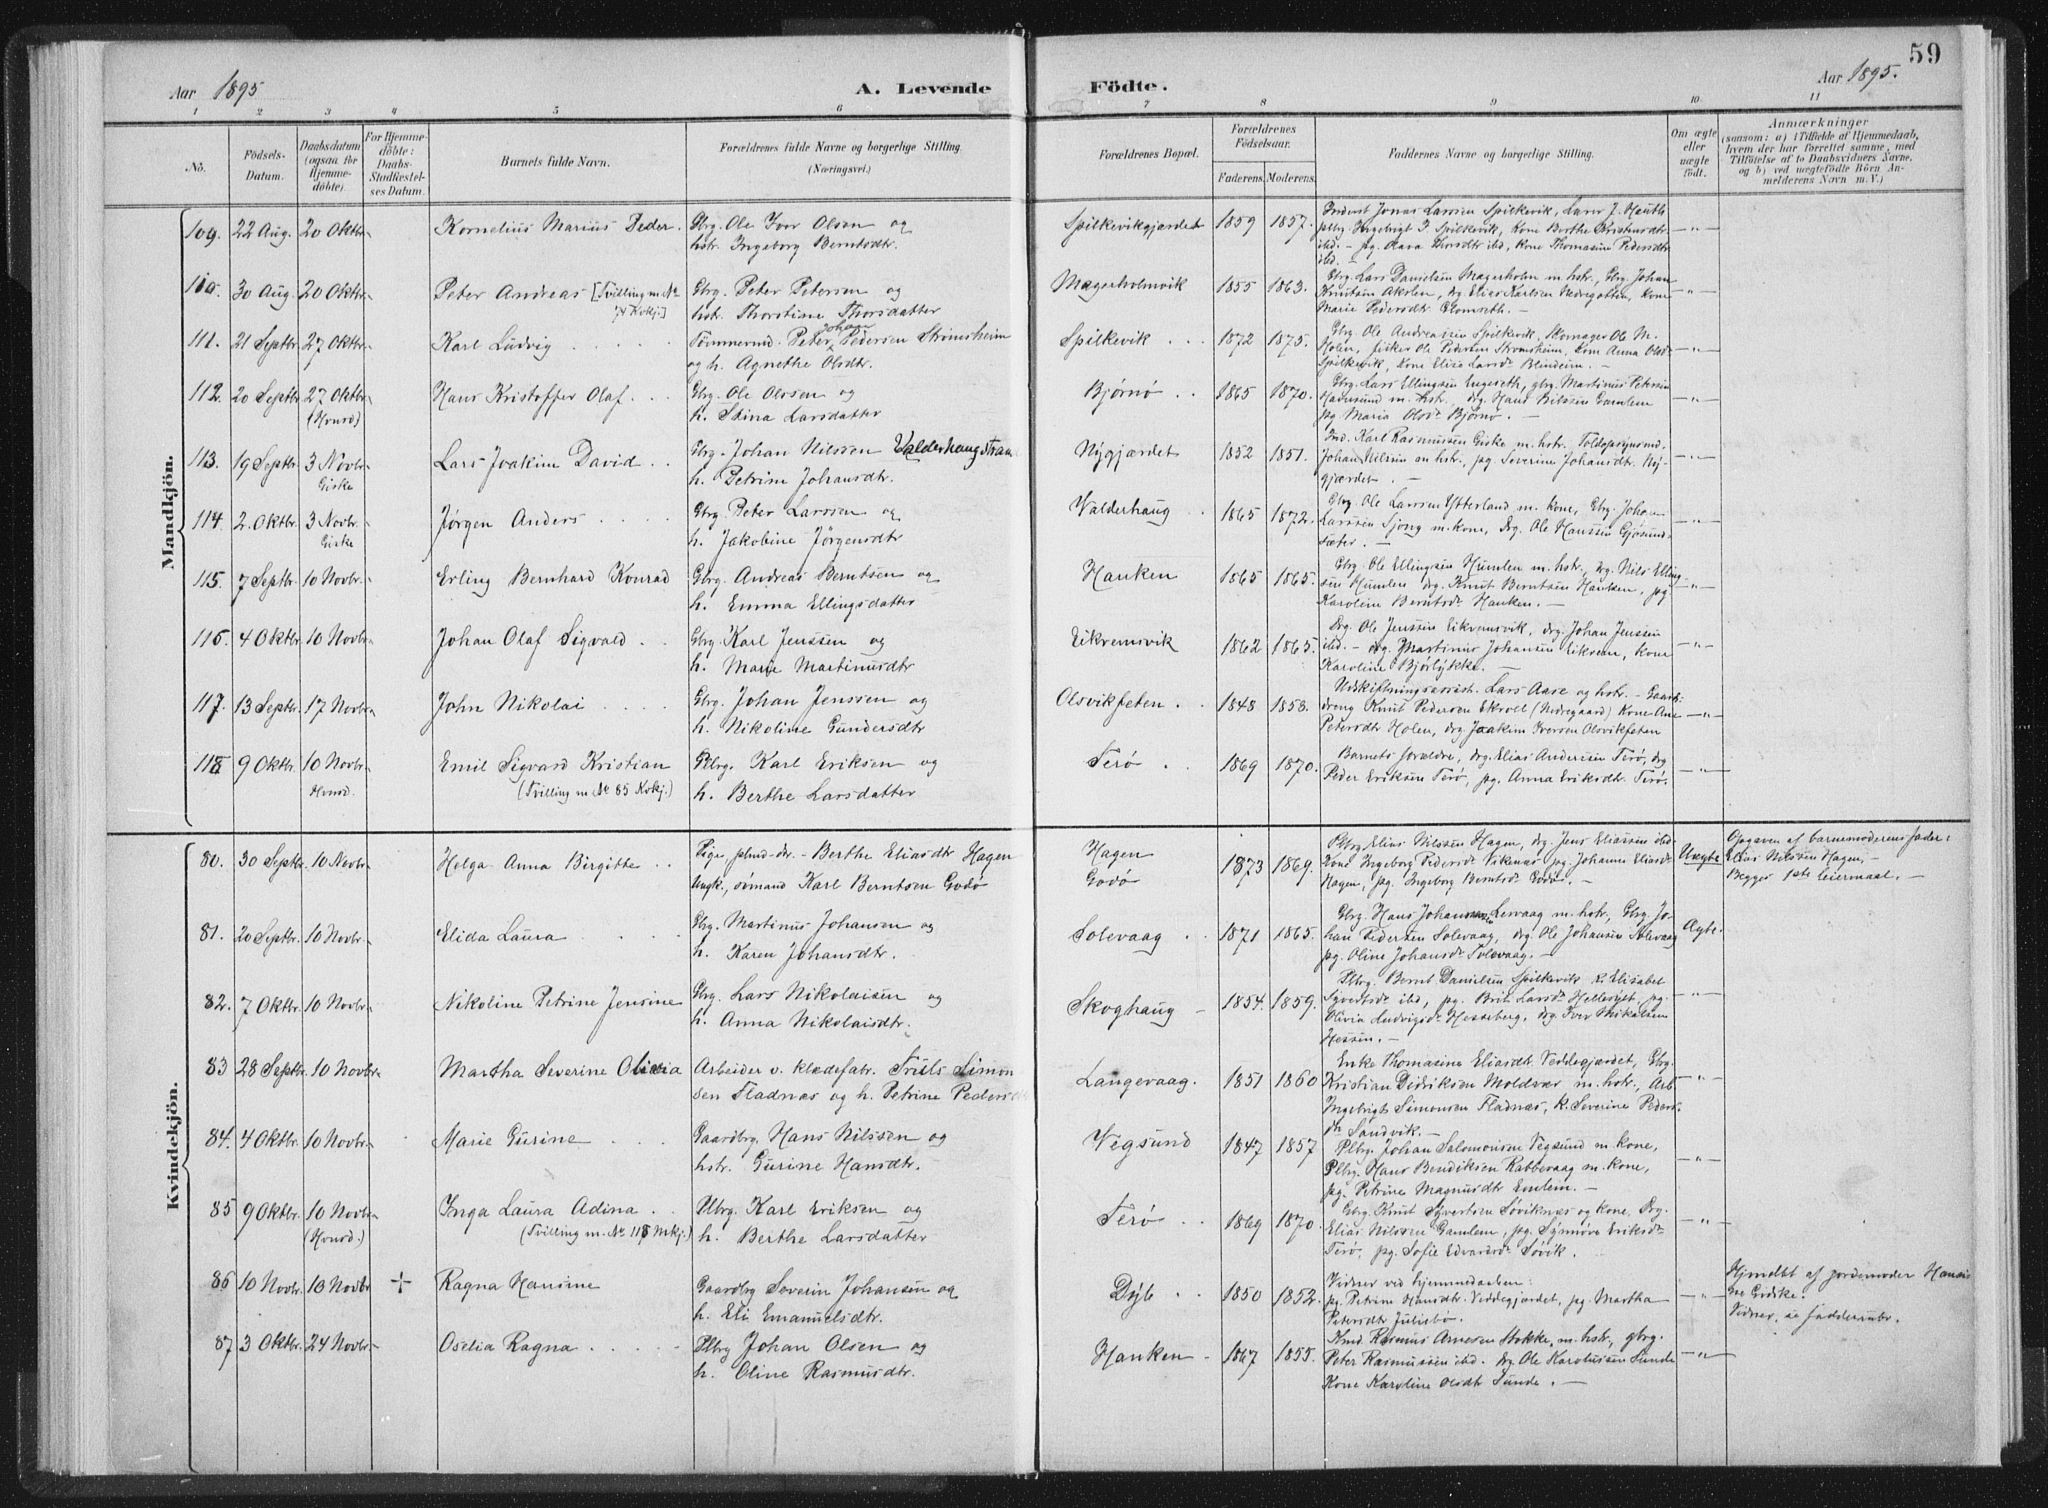 59
Aar 1895
A. Levende Födte.
Aar 1895.
1 2 3 4 5 6 7 8 9 10 11
No.
Födsels-Datum.
Daabsdatum (ogsaa för Hjemmedöbte).
For Hjemmedöbte: Daabs-Stadfæstelses Datum.
Barnets fulde Navn.
Forældrenes fulde Navne og borgerlige Stilling. (Næringsvei.)
Forældrenes Bopæl.
Forældrenes Födselsaar.
Faderens. Moderens.
Faddernes Navne og borgerlige Stilling.
Om ægte eller uægte födt.
Anmærkninger
(saasom: a) i Tilfælde af Hjemmedaab, hvem der har forrettet samme, med Tilföielse af to Daabsvidners Navne, og b) ved uægtefödte Börn Anmelderens Navn m. V.)
Mandkjön.
109. 22 Aug. 20 Oktbr. Kornelius Marius Peder. Gbrg. Ole Iver Olsen og
hstr. Ingeborg Berntsdtr.
Spilkevikgjærdet 1859 1857. Inderst Jonas Larssen Spilkevik, Lærer J. Hauth
plbg. Ingebrigt I. Spilkevik, Kone Berthe Kristensdtr.
ibd. – pg. Olava Thorsdtr ibd, kone Thomasine Pedersdtr
ibd. – –"–
110. 30 Aug. 20 Oktbr. Peter Andreas [Tvilling m. No 74 Kvkj.] Gbrg. Peter Petersen og
hst. Thorstine Thorsdatter
Magerholmvik 1855 1863. Gbrg. Lars Danielsen Magerholm m. hstr., Gbrg. Johan
Knutsen Akslen, dg. Elias Karlsen Nedregotten, kone
Marie Pedersdtr Glomseth. – –"–
111. 21 Septbr. 27 Oktbr. Karl Ludvig Tömmermd. Peter Johan Pedersen Strömsheim
og h. Agnethe Olsdtr.
Spilkevik 1872 1875. Gbrg. Ole Andreassen Spilkevik, Skomager Ole M.
Holen, fisker Ole Pedersen Strömsheim, Kone Anna Olsdr
Spilkevik, Kone Elise Larsdr Blindheim. – –"–
112. 20 Septbr 27 Oktbr (Hvnsd) Hans Kristoffer Olaf. Gbrg. Ole Olsen og
h. Stina Larsdatter
Bjørnø 1865 1870. Gbrg. Lars Ellingsen Engeseth, gbrg. Martinus Petersen
Havnsund m. hst., dg. Hans Nilssen Gamlem
pg. Maria Olsdr Bjørnø. – –"–
113. 19 Septbr 3 Novbr. Giske Lars Joakim David Gbrg. Johan Nilssen Valderhaugstran
h. Petrine Johansdtr.
Nygjærdet 1852 1851. Ind. Karl Rasmussen Giske m. hstr. Toldopsynsmd.
Johan Nilssen m hstr., pg. Severine Johansdtr. Ny-
gjærdet. – –"–
114. 2. Oktbr. 3 Novbr. Giske Jørgen Anders Gbrg. Peter Larssen og
h. Jakobine Jörgensdtr
Valderhaug 1865 1872. Gbrg. Ole Larssen Ytterland m. kone, Gbrg. Johan
Larssen Sjong m. kone, Dg. Ole Hanssen Gjøsund-
sæter. – –"–
115. 7 Septbr. 10 Novbr. Erling Bernhard Konrad Gbrg. Andreas Berntsen og
h. Emma Ellingsdatter
Hanken 1865 1865. Gbrg. Ole Ellingsen Humlen m. hstr., dg. Nils Elling-
sen Humlen dg. Knut Berntsen Hanken, pg.
Karoline Berntsdr Hanken. – –"–
116. 4 Oktbr. 10 Novbr. Johan Olaf Sigvald Gbrg. Karl Jenssen og
h. Marie Martinusdtr
Eikremsvik 1862 1865. Dg. Ole Jenssen Eikremsvik, dg. Johan Jenssen
ibd. – dg. Martinus Johansen Eikrem, kone
Karoline Bjørlykke. – –"–
117. 13 Septbr. 17 Novbr. John Nikolai Gbrg. Johan Jenssen og
h. Nikoline Gundersdtr
Olsvikfeten 1848 1858. Udskiftningsassist. Lars Aase og hstr. – Gaard-
dreng Knut Pedersen Ekroll (Nedregaard) Kone Ane
Petersdtr Holen, dg. Joakim Iversen Olsvikfeten –"–
118 9 Oktbr. 10 Novbr. Hvnsd. Emil Sigvard Kristian (Tvilling m. No 85 Kvkj.) Plbrg. Karl Eriksen og
h. Berthe Larsdatter
Terø 1869 1870. Barnets forældre, dg. Elias Andersen Terø, dg
Peder Eriksen Terø, pg. Anna Eriksdtr. Terø. –"–
Kvindekjön.
80. 30 Septbr. 10 Novbr. Helga Anna Birgitte Pige, plmd-dr. – Berthe Eliasdtr Hagen
Ungk., sömand Karl Berntsen Godø
Hagen
Godö 1873 1869. Plbrg. Elias Nilssen Hagen, dg. Jens Eliassen ibd
Kone Ingeborg Pedersdr Viknæs pg. Johanne Eliasdr
Hagen, pg. Ingeborg Berntsdr Godø. – Uægte Opgaven af barnemoderens fader:
Elias Nilssen Hagen, –
Begges 1ste leiermaal. –
81. 20 Septbr. 10 Novbr. Elida Laura Gbrg. Martinus Johansen og
h. Karen Johansdtr.
Solevaag 1871 1865. Gbrg. Hans Johansen Levaag m. hstr, Gbrg. Jo-
han Pedersen Solevaag, dg. Ole Johansen Solevaag
pg. Oline Johansdr Solevaag. – Ægte.
82. 7 Oktbr. 10 Novbr. Nikoline Petrine Jensine Gbrg. Lars Nikolaisen og
h. Anna Nikolaisdtr.
Skoghaug 1854. 1859. Plbrg. Bernt Danielsen Spilkevik k. Elisabet
Syvertsdr ibd, pg. Brit Larsdr Hellesylt, pg.
Olivia Ludvigsdr Hesseberg, dg. Iver Mikalsen
Hessen. – –"–
83 28 Septbr. 10 Novbr. Martha Severine Olivia Arbeider v. klædefabr. Troels Simon
sen Fladnæs og h. Petrine Pedersdtr
Langevaag. 1851 1860 Enke Thomasine Eliasdtr Veddegjærdet, Gbrg.
Kristian Didriksen Moldvær m. hstr., Arb
Ingebrigt Simonsen Fladnæs, k. Severine Peders
dtr Sandvik. – –"–
84. 4 Oktbr. 10 Novbr. Marie Gurine Gaardbrg. Hans Nilssen og
hstr. Gurine Hansdtr.
Vegsund 1847 1857 Plbrg. Johan Salomonsen Vegsund m. kone,
Plbrg. Hans Bendiksen Rabbevaag m. kone,
pg. Petrine Magnusdtr Emlem. – –"–
85 9 Oktbr. 10 Novbr (Hvnsd.) Inga Laura Adina (Tvilling m. No 118 Mkj.) Plbrg. Karl Eriksen og
h. Berthe Larsdatter
Terø 1869 1870. Gbrg. Knut Syvertsen Søviknæs og kone, Dg.
Elias Nilssen Gamlem, pg. Synnöve Eriksdr
Terø, pg. Sofie Edvardsdr Søvik. –"–
86 10 Novbr. 10 Novbr + Ragna Hansine Gaardbrg Severin Johansen og
h. Eli Emanuelsdtr.
Dyb 1850 1852. Vidner ved hjemmedaaben:
pg. Petrine Hansdtr. Veddegjærdet, pg. Martha
Petersdtr Julsebø. –"– Hjmdbt af jordemoder Hansi-
ne Giske.
Vidner, se fadderrubr.
87 3 Oktbr. 24 Novbr. Oselia Ragna Plbrg Johan Olsen og
h. Oline Rasmusdtr.
Hanken 1867 1855. Knd Rasmus Arnesen Stokke, m. hstr, gbrg.
Peter Rasmussen ibd. dg Ole Karolussen Sunde
Kone Karoline Olsdtr Sunde. – –"–